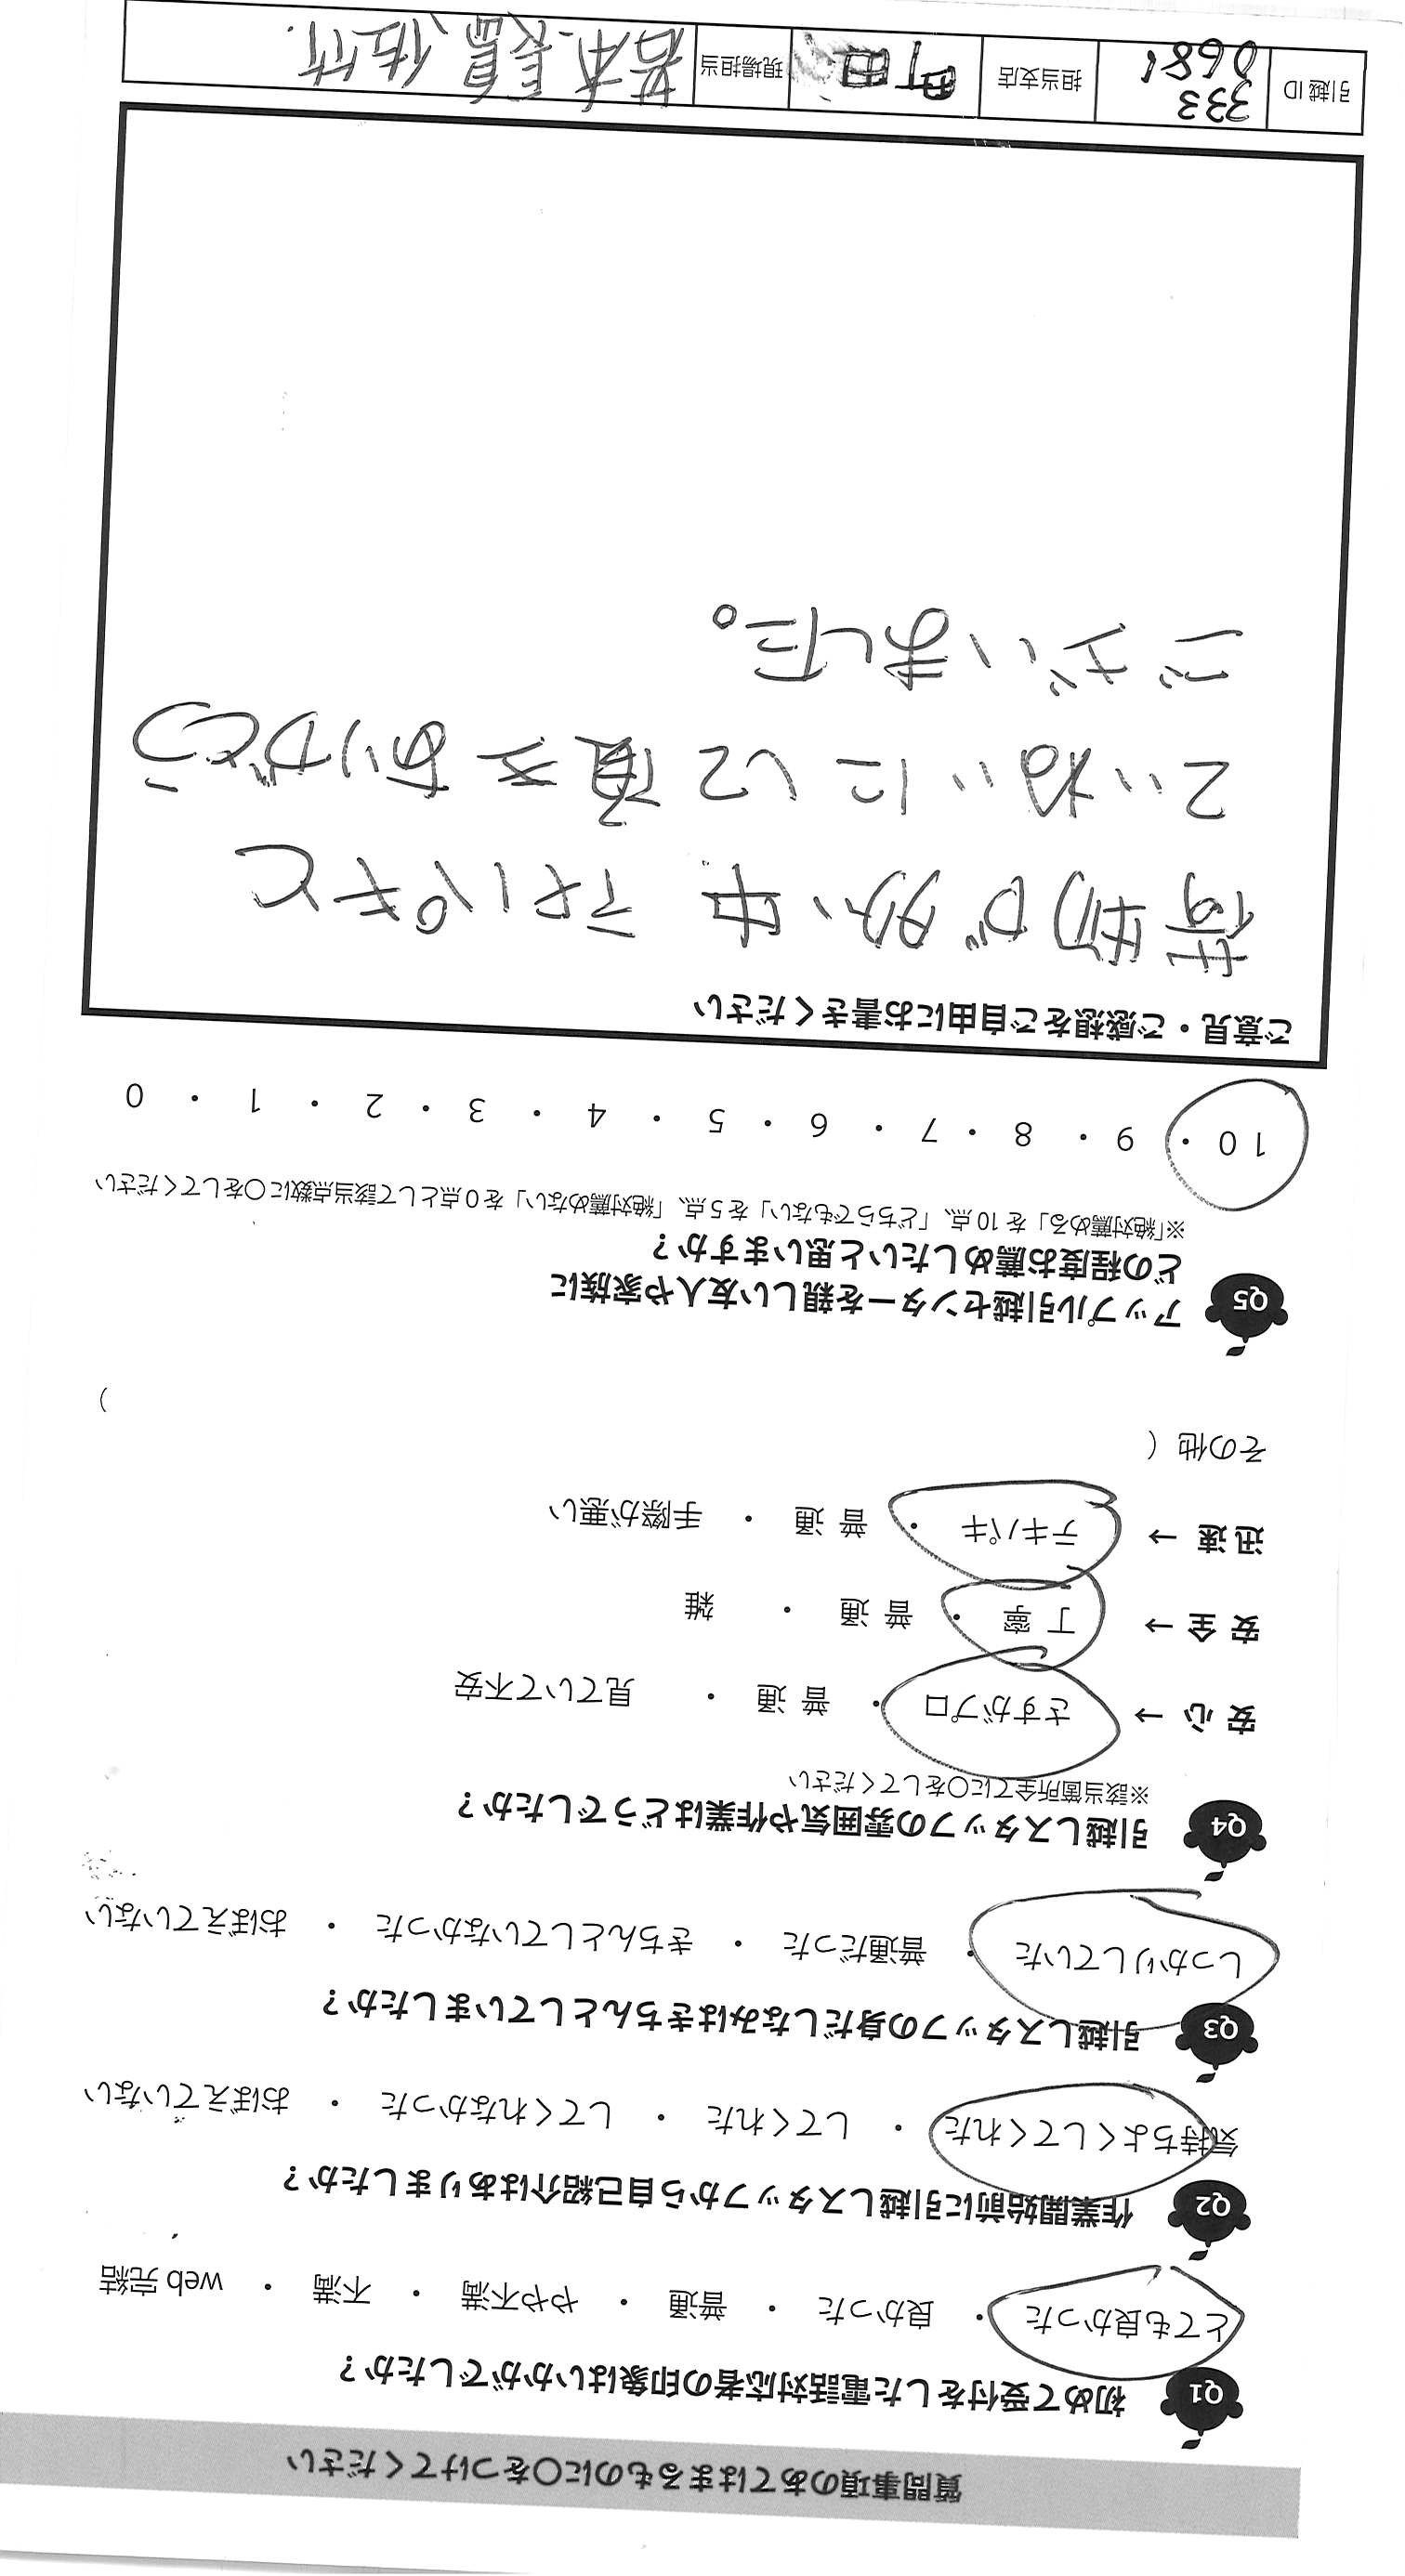 質問事項のあてはまるものに〇をつけてください
Q1 初めて受付をした電話対応者の印象はいかがでしたか?
とても良かった ・ 良かった ・ 普通 ・ やや不満 ・ 不満 ・ web 完結
Q2 作業開始前に引越しスタッフから自己紹介はありましたか?
気持ちよくしてくれた ・ してくれた ・ してくれなかった ・ おぼえていない
Q3 引越しスタッフの身だしなみはきちんとしていましたか?
しっかりしていた ・ 普通だった ・ きちんとしていなかった ・ おぼえていない
Q4 引越しスタッフの雰囲気や作業はどうでしたか?
※該当箇所全てに〇をしてください
安 心 → さすがプロ ・ 普 通 ・ 見ていて不安
安 全 → 丁 寧 ・ 普 通 ・ 雑
迅 速 → テキパキ ・ 普 通 ・ 手際が悪い
その他 ( )
Q5 アップル引越センターを親しい友人や家族に
どの程度お薦めしたいと思いますか?
※「絶対薦める」を 10 点、「どちらでもない」を 5 点、「絶対薦めない」を 0 点として該当点数に〇をしてください
10 ・ 9 ・ 8 ・ 7 ・ 6 ・ 5 ・ 4 ・ 3 ・ 2 ・ 1 ・ 0
ご意見・ご感想をご自由にお書きください
荷物が多い中 テキパキと
ていねいにして頂き ありがとう
ございました。
引越 ID 333
0681 担当支店 町田 現場担当 岩本、長島、佐竹